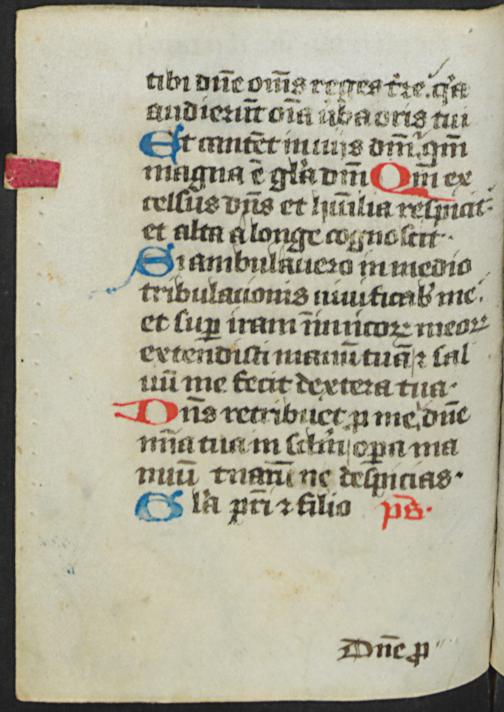 tibi dñe om̃s reges t̃re. q̃a
audierũt oĩa ũba oris tui
Et cantẽt in uijs dñi qm̃
magna ẽ gl̃a dñi Qm̃ ex
celsus dñs et hũilia respicit
et alta a longe cognoscit.
Si ambulauero in medio
tribulationis uiuificab̾ me.
et sup̱ iram inimicoꝝ meoꝝ
extendisti manũ tuã ⁊ sal
uũ me fecit dextera tua.
Dñs retribuet ꝓ me, dñe
mĩa tua in sc̃lm̃ oꝑa ma
nuũ tuaꝝ ne despicias.
Gl̃a pr̃i ⁊ filio ps̃.
Dñe ꝓ